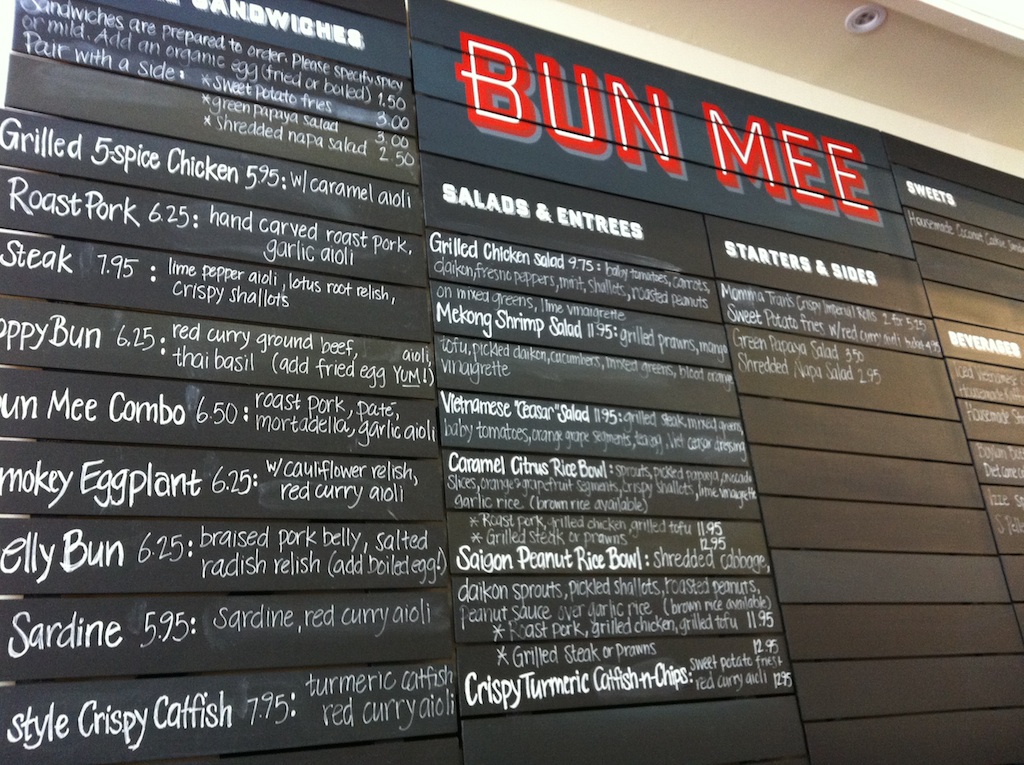 SANDWICHES
Sandwiches are prepared to order. Please specify spicy
or mild. Add an organic egg (fried or boiled) 1.50
Pair with a side: *sweet potato fries 3.00
*green papaya salad 3.00
*shredded napa salad 2.50
Grilled 5-spice Chicken 5.95: w/caramel aioli
Roast Pork 6.25: hand carved roast pork,
garlic aioli
Steak 7.95: lime pepper aioli, lotus root relish,
crispy shallots
oppy Bun 6.25: red curry ground beef,
thai basil (add fried egg YUM!) aioli,
un Mee Combo 6.50: roast pork, paté,
mortadella, garlic aioli
mokey Eggplant 6.25: w/cauliflower relish,
red curry aioli
elly Bun 6.25: braised pork belly, salted
radish relish (add boiled egg!)
Sardine 5.95: Sardine, red curry aioli
style Crispy Catfish 7.95: turmeric catfish
red curry aioli
BUN MEE
SALADS & ENTREES
Grilled Chicken salad 9.75: baby tomatoes, carrots,
daikon, fresno peppers, mint, shallots, roasted peanuts
on mixed greens, lime vinaigrette
Mekong Shrimp Salad 11.95: grilled prawns, mango
tofu, pickled daikon, cucumbers, mixed greens, blood orange
vinaigrette
Vietnamese "Ceasar" Salad 11.95: grilled steak, mixed greens
baby tomatoes, orange grape segments, tea egg, Viet ceasar dressing
Caramel Citrus Rice Bowl: sprouts, pickled papaya, avocado
slices, orange + grapefruit segments, crispy shallots, lime vinaigrette
garlic rice (brown rice available)
* Roast pork, grilled chicken, grilled tofu 11.95
* Grilled steak or prawns 12.95
Saigon Peanut Rice Bowl: shredded cabbage,
daikon sprouts, pickled shallots, roasted peanuts,
peanut sauce over garlic rice. (brown rice available)
* Roast pork, grilled chicken, grilled tofu 11.95
* Grilled Steak or Prawns 12.95
Crispy Turmeric Catfish-n-Chips: sweet potato fries
red curry aioli 12.95
STARTERS & SIDES
Momma Tran's Crispy Imperial Rolls 2 for 5.25
Sweet Potato fries w/red curry aioli 4.95
Green Papaya Salad 3.50
Shredded Napa Salad 2.95
SWEETS
Housemade Coconut Cookie
BEVERAGES
Iced Vietnamese
Housemade
Housemade
Diet